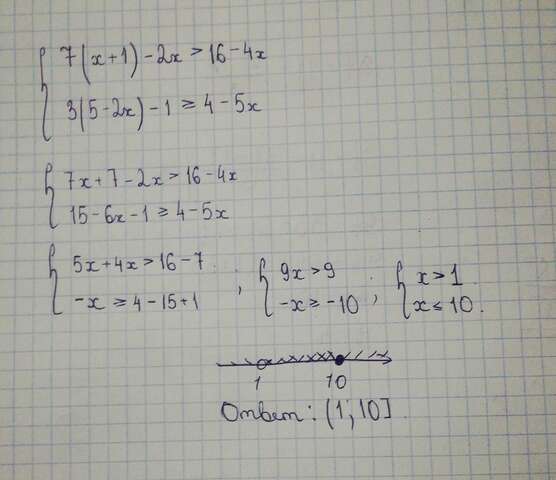 7(x+1)-2x>16-4x
3(5-2x)-1≥4-5x
7x+7-2x>16-4x
15-6x-1≥4-5x
5x+4x>16-7 ; 9x>9 ; x>1
-x≥4-15+1 -x≥-10 x≤10.
1 10
Ответ: (1;10]